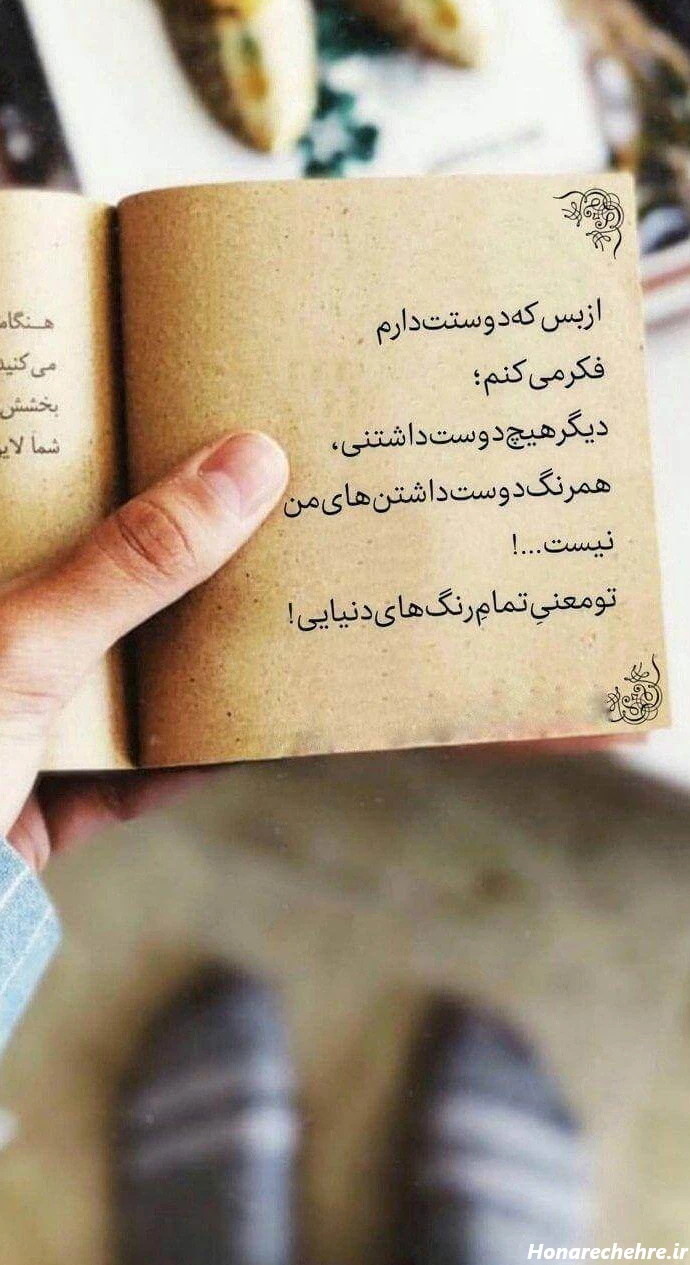 از بس که دوستت دارم
فکر می کنم؛
دیگر هیچ دوست داشتنی،
همرنگ دوست داشتن های من
نیست...!
تو معنیِ تمامِ رنگ های دنیایی!
می کنید
بخشش
شما
Honarechehre.ir